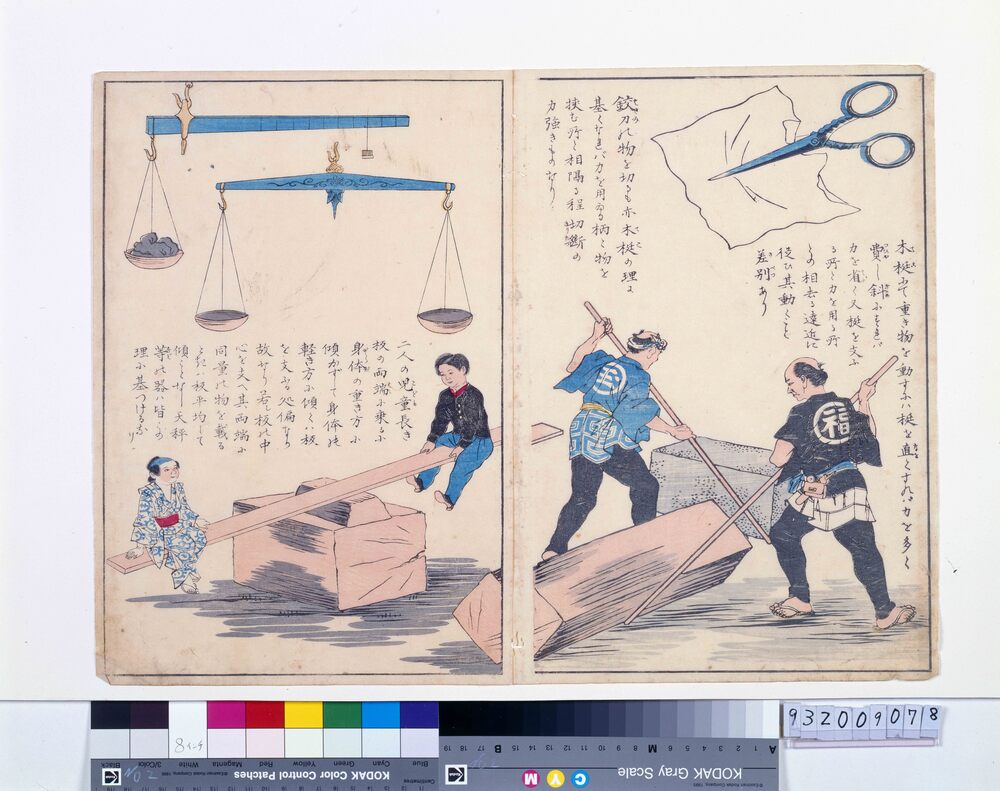 木梃にて重き物を動すには梃を直くすれば力を多く
費し斜にすれば
力を省く又梃を支ふ
る所と力を用る所
との相去る遠近に
従ひ其動くこと
差別あり
鋏刀の物を切るも亦木梃の理に
基くなれバ力を用ゐる柄と物を
挟む所と相隔る程切断の
力強きものなり
福
二人の児童長き
板の両端に乗るに
身体の重き方に
傾かずして身体の
軽き方に傾くは板
を支ふる処偏なり
故なり若し板の中
心を支へ其両端に
同量の物を載る
ときは板平均して
傾くことなし天秤
等の器は皆この
理に基つけるなり
932009078
KODAK Color Control Patches
Blue Cyan Green Yellow Red Magenta White 3/Color Black
KODAK Gray Scale
C Y M
A 1 2 3 4 5 6 M 8 9 10 11 12 13 14 15 B 17 18 19